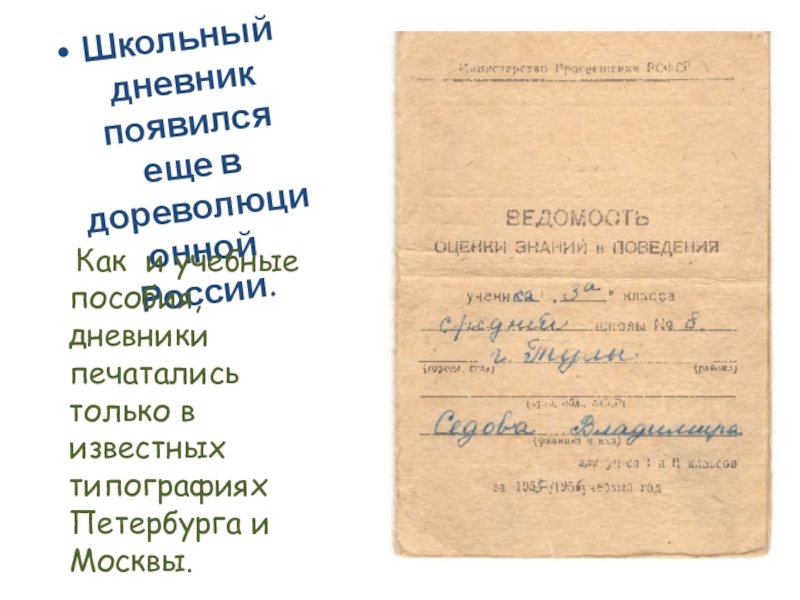 • Школьный
дневник
появился
еще в
дореволюци
онной
России.
Как и учебные
пособия,
дневники
печатались
только в
известных
типографиях
Петербурга и
Москвы.
Министерство Просвещения РСФСР
ВЕДОМОСТЬ
ОЦЕНКИ ЗНАНИЙ и ПОВЕДЕНИЯ
ученика „3а" класса
средней школы № 8.
г. Тулы
(города, села) (района)
Седова Владимира
(фамилия и имя)
для уч-ся I и II классов
за 1955/1956 учебный год